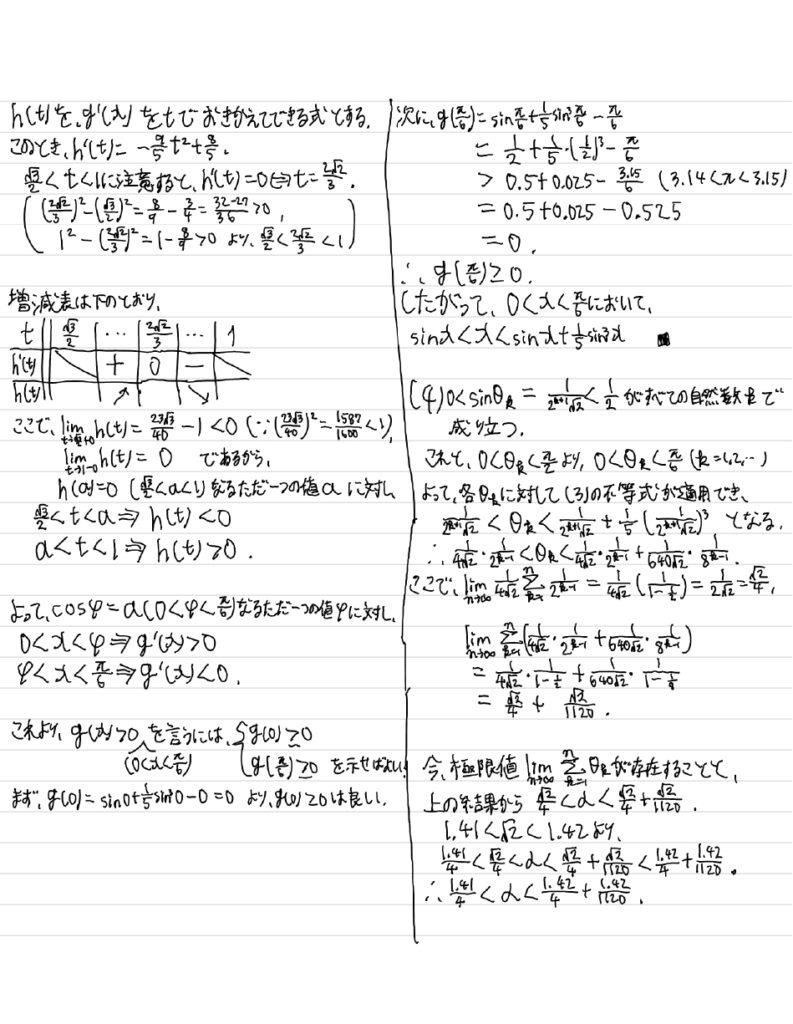 h(t)を、g'(x)をtでおきかえてできる式とする.
このとき、h'(t)= -9/5 t²+8/5.
√3/2<t<1に注意すると、h'(t)=0⇔t=2√2/3.
( (2√2/3)²-(√3/2)²=8/9-3/4=32-27/36>0,
1²-(2√2/3)²=1-8/9>0 より、√3/2<2√2/3<1 )
増減表は下のとおり、
t | √3/2 | … | 2√2/3 | … | 1
h'(t) | ＼ | + | 0 | − | ＼
h(t) | | ↗ | | ↘ |
ここで、lim_{t→√3/2+0} h(t)=23√3/40-1<0 (∵(23√3/40)²=1587/1600<1),
lim_{t→1-0} h(t)=0 であるから、
h(a)=0 (√3/2<a<1)なるただ一つの値aに対し
√3/2<t<a⇒h(t)<0
a<t<1⇒h(t)>0.
よって、cosφ=a(0<φ<π/6)なるただ一つの値φに対し、
0<x<φ⇒g'(x)>0
φ<x<π/6⇒g'(x)<0.
これより、g(x)>0 を言うには、{g(0)≥0
(0<x<π/6) g(π/6)≥0 を示せばよい
まず、g(0)=sin0+1/5sin³0-0=0 より、g(0)≥0は良い.
次に、g(π/6)=sinπ/6+1/5sin³π/6-π/6
=1/2+1/5・(1/2)³-π/6
>0.5+0.025-3.15/6 (3.14<π<3.15)
=0.5+0.025-0.525
=0.
∴g(π/6)≥0.
したがって、0<x<π/6において、
sinx<x<sinx+1/5sin³x ■
(4)0<sinθₖ=1/2^{k+1}√2<1/2 がすべての自然数kで
成り立つ.
これと、0<θₖ<π/2より、0<θₖ<π/6 (k=1,2,…)
よって、各θₖに対して(3)の不等式が適用でき、
1/2^{k+1}√2<θₖ<1/2^{k+1}√2+1/5(1/2^{k+1}√2)³ となる.
∴1/4√2・1/2^{k-1}<θₖ<1/4√2・1/2^{k-1}+1/640√2・1/8^{k-1}.
ここで、lim_{n→∞} 1/4√2 Σ_{k=1}^{n} 1/2^{k-1}=1/4√2(1/1-1/2)=1/2√2=√2/4,
lim_{n→∞} Σ_{k=1}^{n}(1/4√2・1/2^{k-1}+1/640√2・1/8^{k-1})
=1/4√2・1/1-1/2+1/640√2・1/1-1/8
=√2/4+√2/1120.
今、極限値lim_{n→∞} Σ_{k=1}^{n} θₖが存在することと、
上の結果から √2/4<α<√2/4+√2/1120.
1.41<√2<1.42より、
1.41/4<√2/4<α<√2/4+√2/1120<1.42/4+1.42/1120.
∴1.41/4<α<1.42/4+1.42/1120.